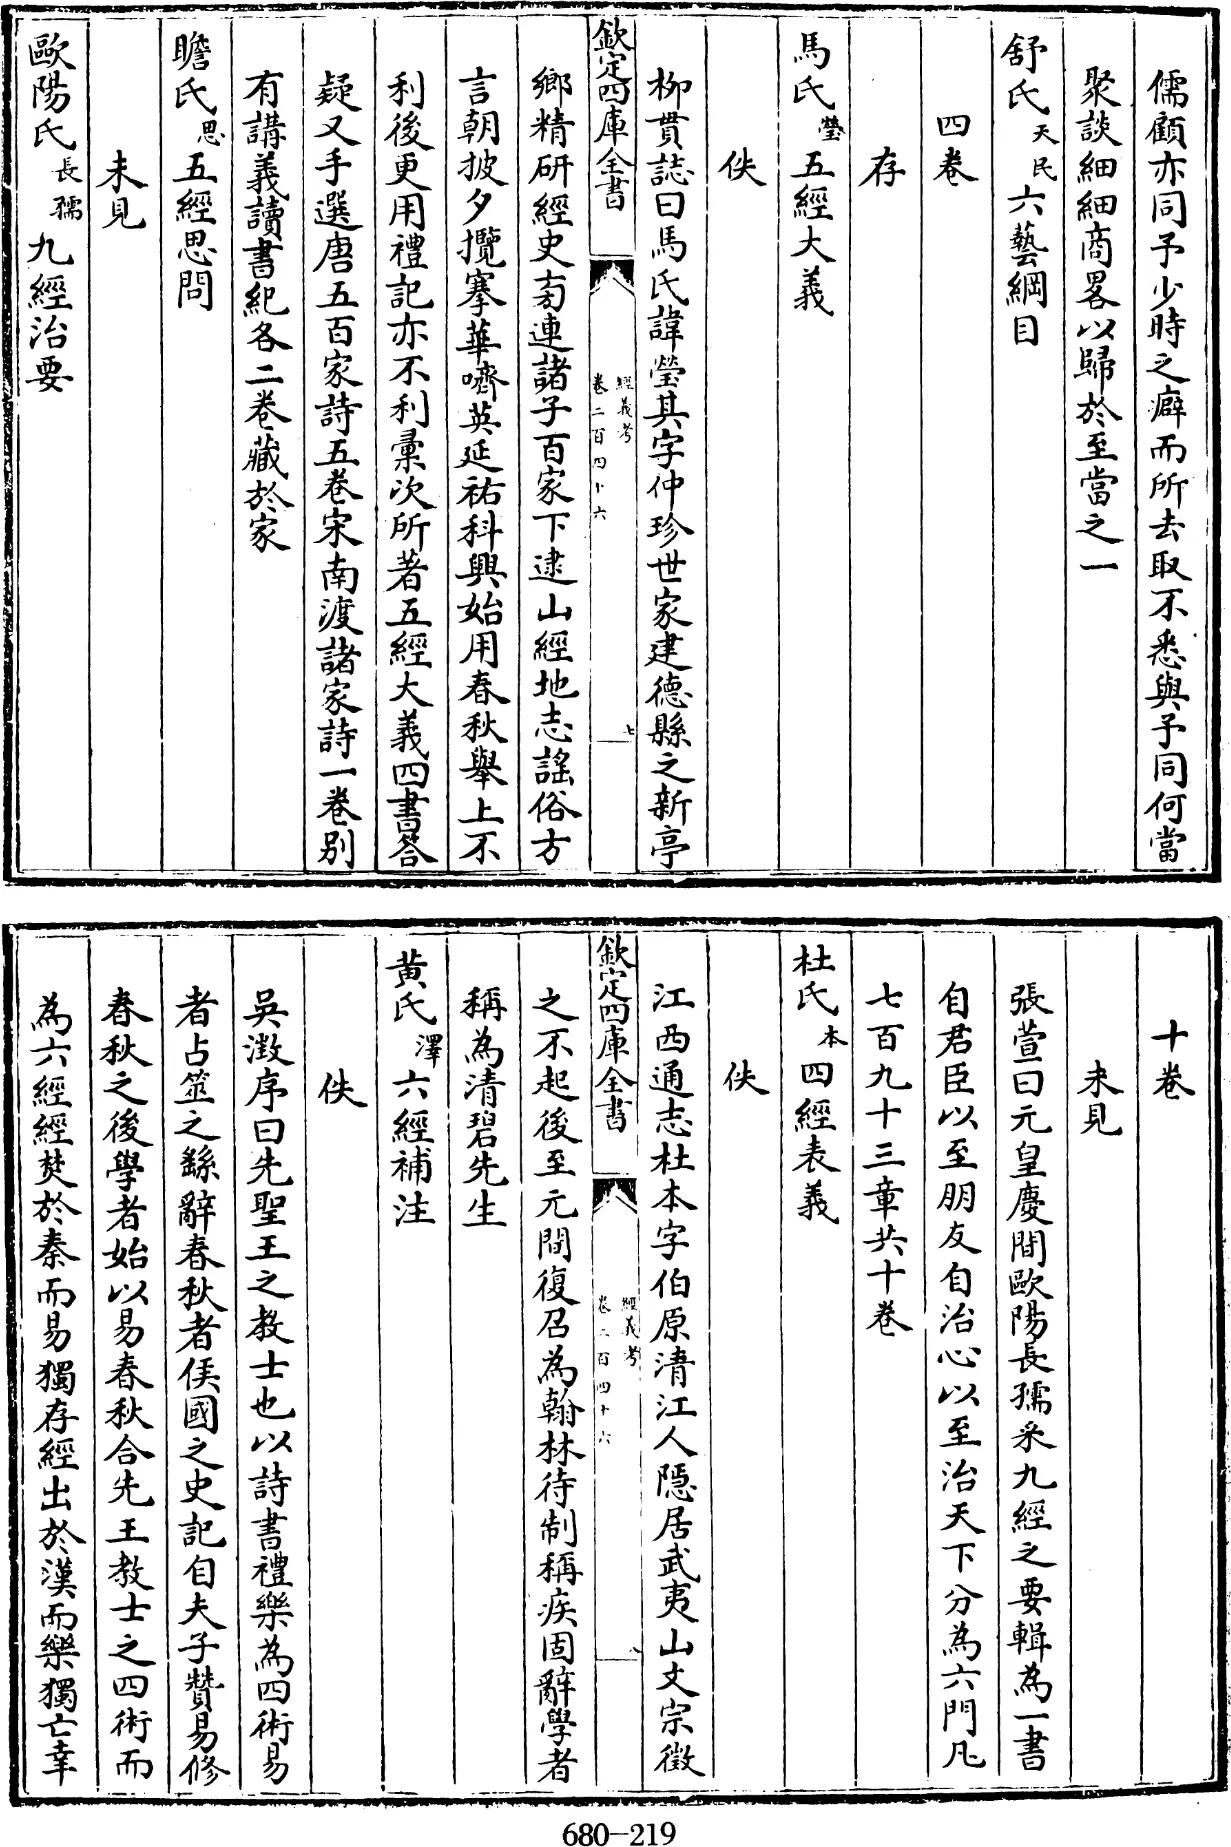 儒顧亦同予少時之癖而所去取不悉與予同何當
聚談細細商畧以歸於至當之一
舒氏天民六藝綱目
四卷
存
馬氏瑩五經大義
佚
柳貫誌曰馬氏諱瑩其字仲珍世家建德縣之新亭
欽定四庫全書
經義考
卷二百四十六
七
鄉精研經史旁連諸子百家下逮山經地志謠俗方
言朝披夕攬搴華嚌英延祐科興始用春秋舉上不
利後更用禮記亦不利彙次所著五經大義四書答
疑又手選唐五百家詩五卷宋南渡諸家詩一卷别
有講義讀書紀各二卷藏於家
瞻氏思五經思問
未見
歐陽氏長孺九經治要
十卷
未見
張萱曰元皇慶間歐陽長孺采九經之要輯為一書
自君臣以至朋友自治心以至治天下分為六門凡
七百九十三章共十卷
杜氏本四經表義
佚
江西通志杜本字伯原清江人隱居武夷山文宗徵
欽定四庫全書
經義考
卷二百四十六
八
之不起後至元間復召為翰林待制稱疾固辭學者
稱為清碧先生
黄氏澤六經補注
佚
吳澂序曰先聖王之教士也以詩書禮樂為四術易
者占筮之繇辭春秋者侯國之史記自夫子贊易修
春秋之後學者始以易春秋合先王教士之四術而
為六經經焚於秦而易獨存經出於漢而樂獨亡幸
680-219